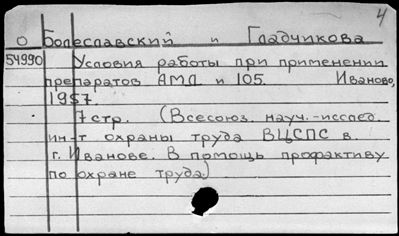 4
О Болеславский и Гладчикова
54990 Условия работы при применении
препаратов АМД и 105. Иваново,
1957.
7 стр. (Всесоюз. науч.-исслед.
ин-т охраны труда ВЦСПС в
г. Иванове. В помощь профактиву
по охране труда.)